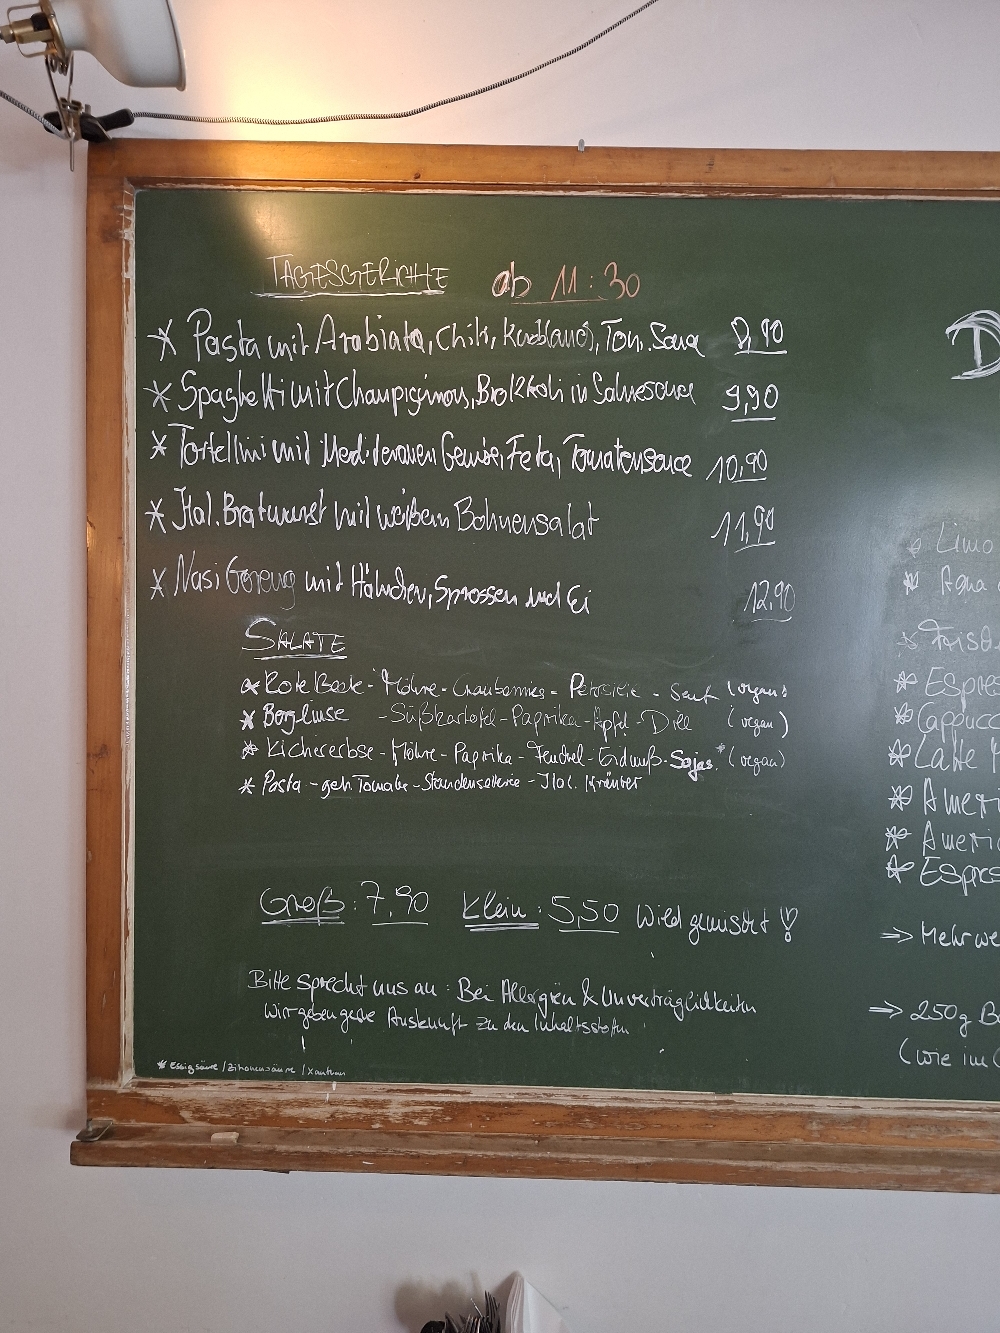 TAGESGERICHTE ab 11:30
* Pasta mit Arabiata, Chili, Knoblauch, Tom. Sauce 8,90
* Spaghetti mit Champiginons, Brokkoli in Sahnesauce 9,90
* Tortellini mit Mediteranen Gemüse, Feta, Tomatensauce 10,90
* Ital. Bratwurst mit weißem Bohnensalat 11,90
* Nasi Goreng mit Hänchen, Sprossen und Ei 12,90
SALATE
* Rote Beete - Möhre - Cranberries - Petersilie - Senf (vegan)
* Berglinse - Süßkartofel - Paprika - Apfel - Dill (vegan)
* Kichererbse - Möhre - Paprika - Fenchel - Erdnuß - Sojas.* (vegan)
* Pasta - getr. Tomate - Staudensellerie - Ital. Kräuter
Groß: 7,90 Klein: 5,50 Wild gemischt!
Bitte sprecht uns an: Bei Allergien & Unverträglichkeiten
Wir geben gerne Auskunft zu den Inhaltsstoffen
* Essigsäure / Zitronensäure / Xanthan
D
* Limo
* Aqua
* Espres
* Cappucc
* Latte M
* Ameri
* Americ
* Espres
⇒ Mehrwe
⇒ 250g B
(wie im